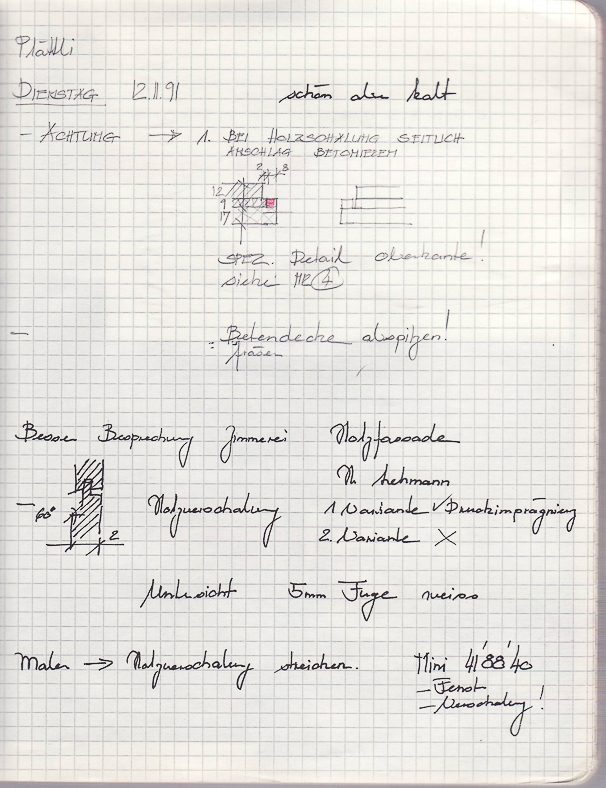 Plättli
DIENSTAG 12.11.91 schön aber kalt
- ACHTUNG → 1. BEI HOLZSCHALUNG SEITLICH
ANSCHLAG BETONIEREN
2 3
12
9
17
SPEZ. Detail oberkante!
siehe 4
- Betondecke abspitzen!
fräsen
Besser Besprechung Zimmerei Holzfassade
H. Lehmann
- 60° Holzverschalung 1 Variante ✓ Druckimprägnierg
2 2. Variante X
Untersicht 5mm Fuge weiss
Maler → Holzverschalung streichen. Mini 41'88'40
- Fenst
- Verschalung!